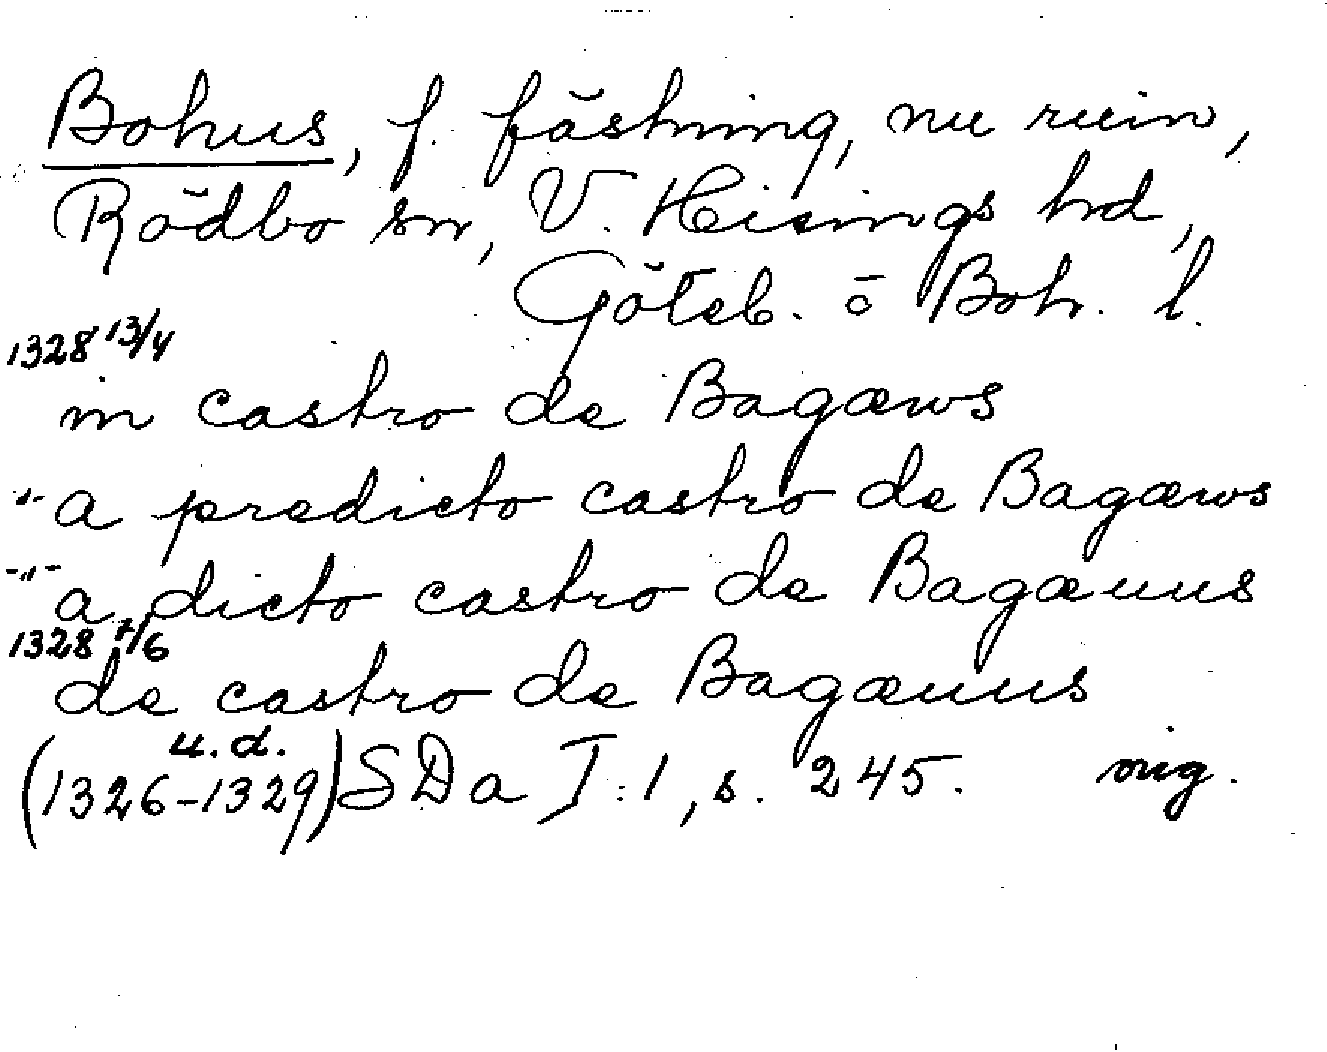 Bohus, f. fästning, nu ruin,
Rödbo sn, V. Hisings hd,
Göteb. o Boh. l.
1328 13/4
in castro de Bagæws
-"- a predicto castro de Bagæws
-"- a dicto castro de Bagæuus
1328 /6
de castro de Bagæuus
u.d.
(1326-1329) SDa I:1, s. 245. orig.